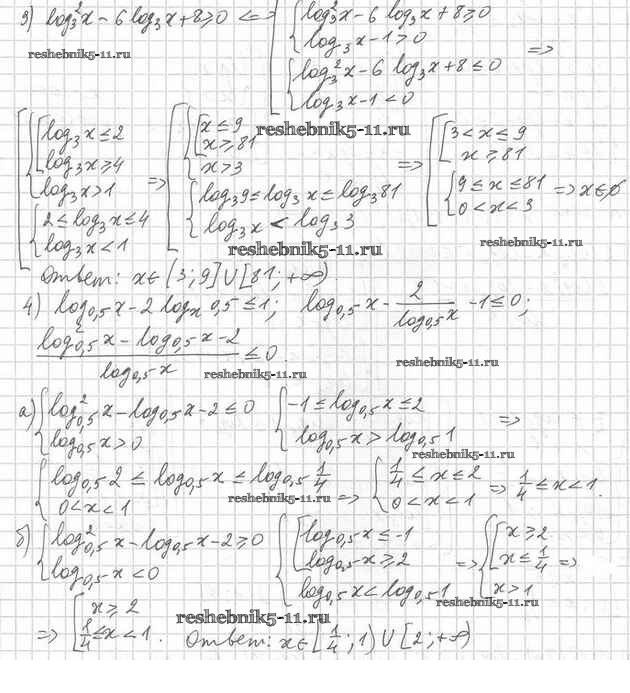 3) log₃²x − 6 log₃x + 8 ≥ 0 <=> [ { log₃²x − 6 log₃x + 8 ≥ 0
log₃x − 1 > 0
{ log₃²x − 6 log₃x + 8 ≤ 0 =>
log₃x − 1 < 0
reshebnik5-11.ru
[ { [ log₃x ≤ 2
log₃x ≥ 4
log₃x > 1
{ 2 ≤ log₃x ≤ 4
log₃x < 1
=> [ { [ x ≤ 9
x ≥ 81
x > 3
{ log₃9 ≤ log₃x ≤ log₃81
log₃x < log₃3
=> [ [ 3 < x ≤ 9
x ≥ 81
{ 9 ≤ x ≤ 81
0 < x < 3 => x ∈ ø
reshebnik5-11.ru
reshebnik5-11.ru
reshebnik5-11.ru
Ответ: x ∈ (3; 9] ∪ [81; +∞)
4) log₀,₅x − 2 logₓ0,5 ≤ 1; log₀,₅x − 2/log₀,₅x − 1 ≤ 0;
(log²₀,₅x − log₀,₅x − 2)/log₀,₅x ≤ 0.
reshebnik5-11.ru
reshebnik5-11.ru
а) { log²₀,₅x − log₀,₅x − 2 ≤ 0 { −1 ≤ log₀,₅x ≤ 2 =>
log₀,₅x > 0 log₀,₅x > log₀,₅1
reshebnik5-11.ru
{ log₀,₅2 ≤ log₀,₅x ≤ log₀,₅1/4 => { 1/4 ≤ x ≤ 2 => 1/4 ≤ x < 1.
0 < x < 1 0 < x < 1
reshebnik5-11.ru
б) { log²₀,₅x − log₀,₅x − 2 ≥ 0
log₀,₅x < 0
{ [ log₀,₅x ≤ −1
log₀,₅x ≥ 2
log₀,₅x < log₀,₅1
=> { [ x ≥ 2
x ≤ 1/4 =>
x > 1
reshebnik5-11.ru
reshebnik5-11.ru
=> [ x ≥ 2
1/4 ≤ x < 1. Ответ: x ∈ [1/4; 1) ∪ [2; +∞)